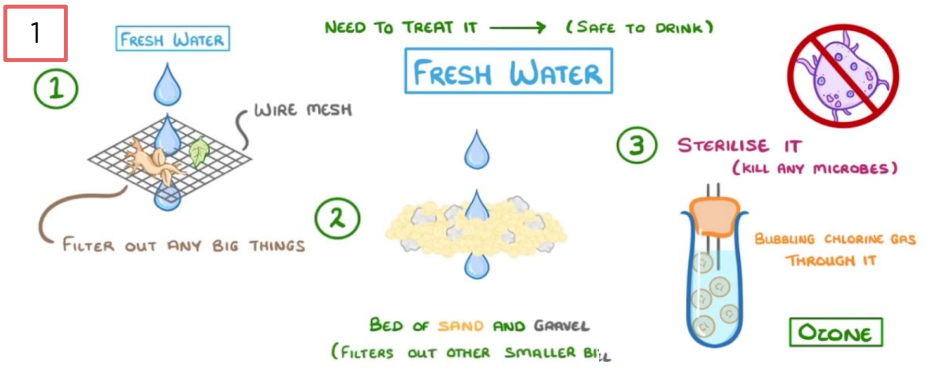 1
FRESH WATER
1
WIRE MESH
FILTER OUT ANY BIG THINGS
NEED TO TREAT IT → (SAFE TO DRINK)
FRESH WATER
2
BED OF SAND AND GRAVEL
(FILTERS OUT OTHER SMALLER
3
STERILISE IT
(KILL ANY MICROBES)
BUBBLING CHLORINE GAS
THROUGH IT
OZONE